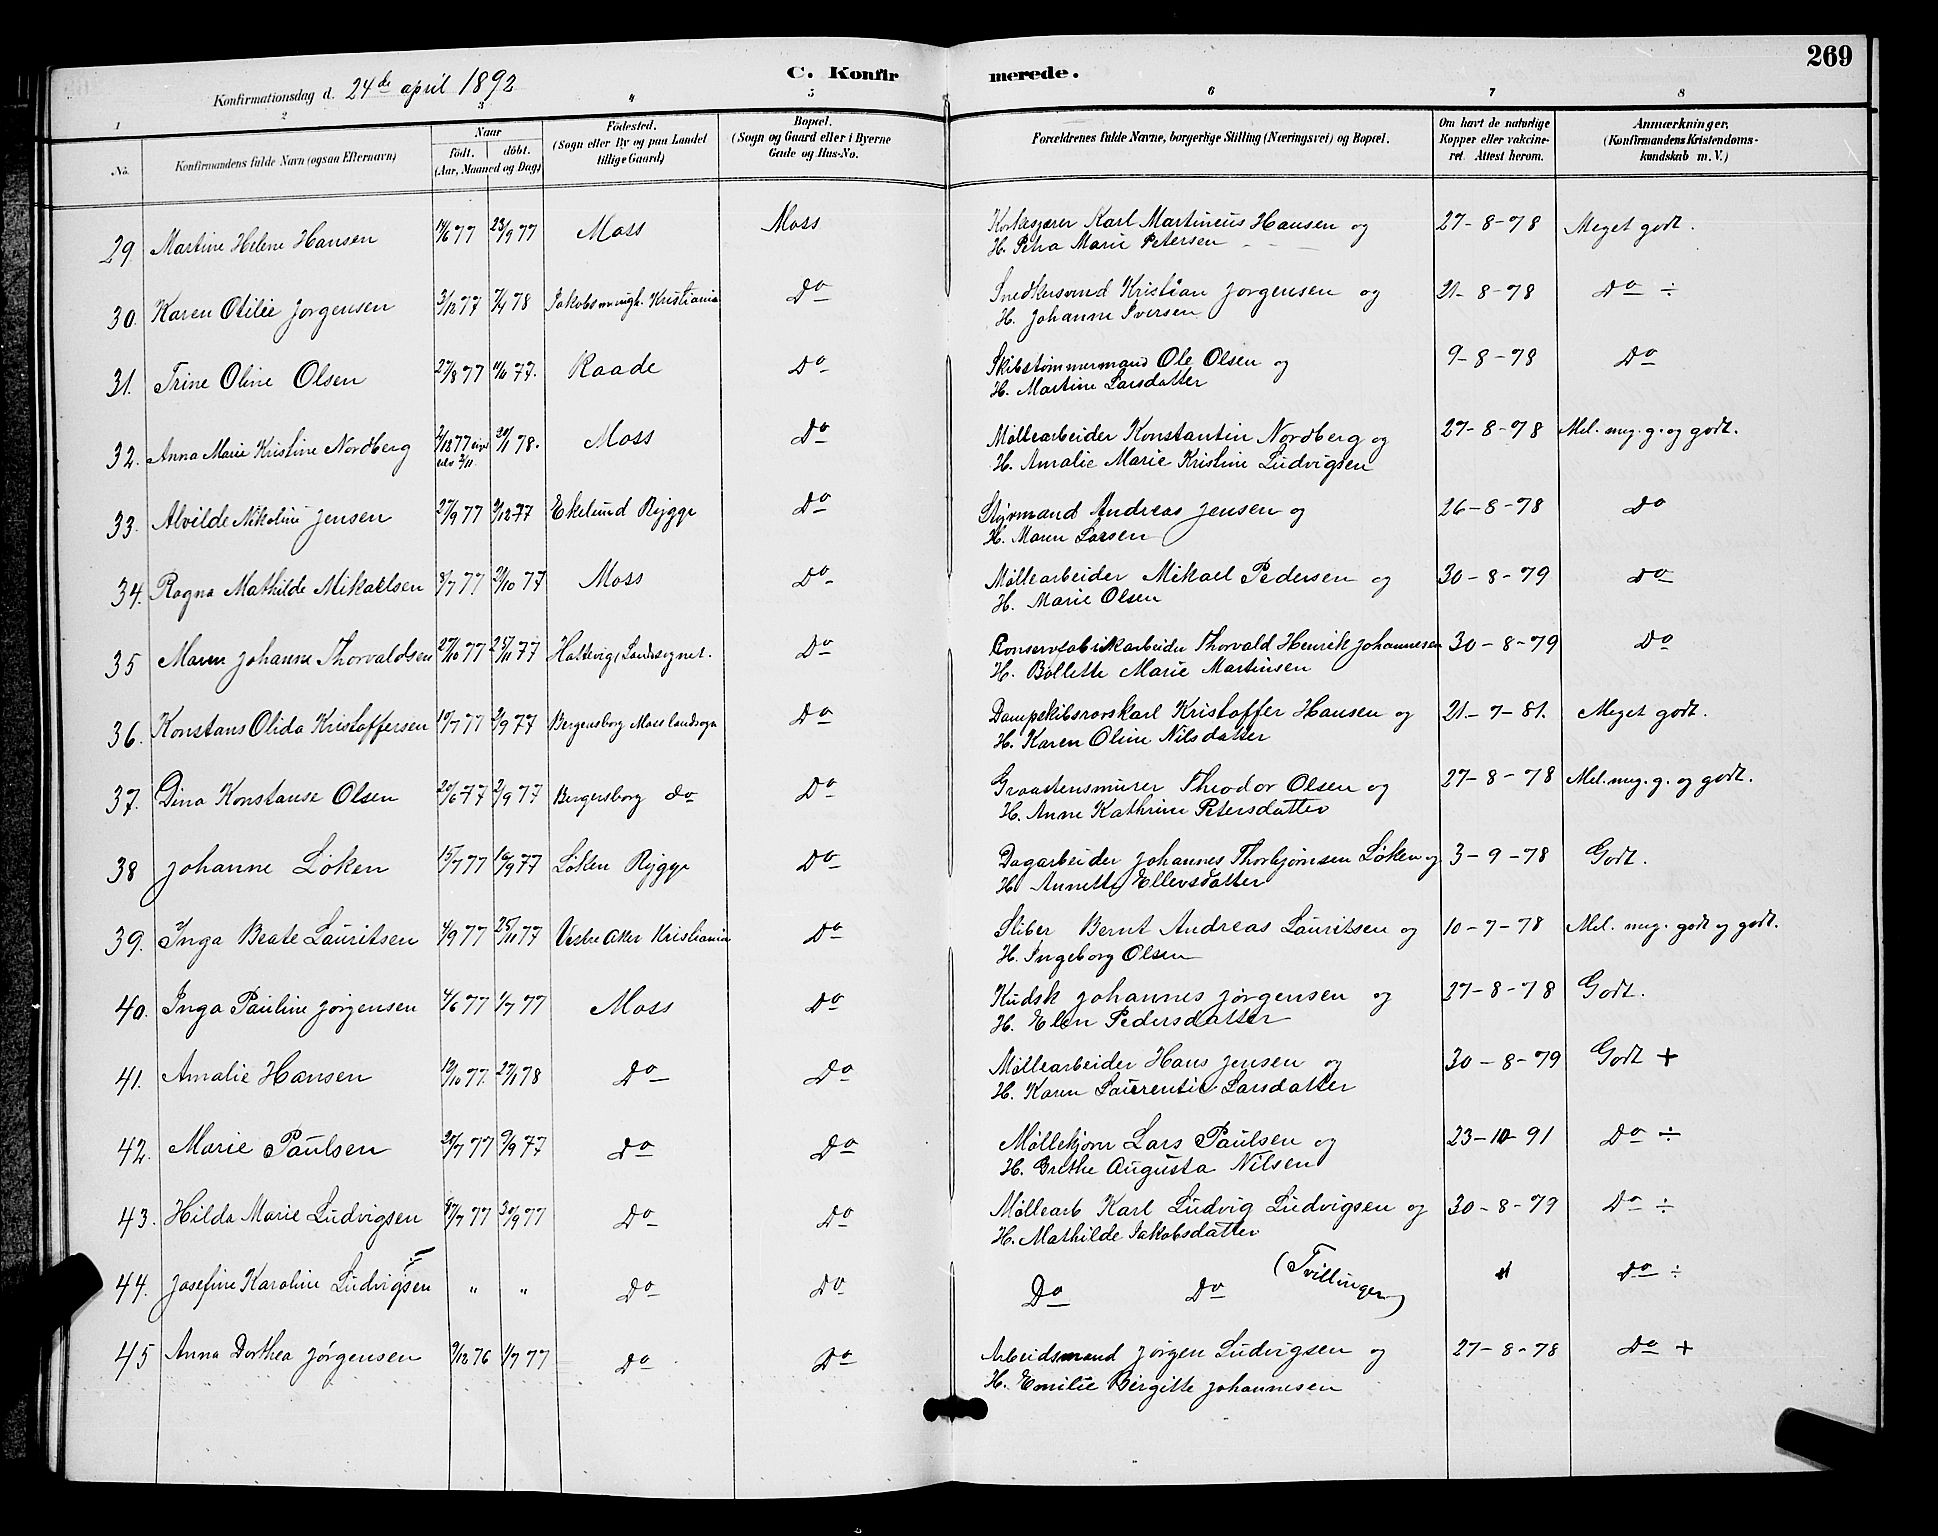 269
C. Konfirmerede.
Konfirmationsdag d. 24de april 1892
1 2 3 4 5 6 7 8
No. Konfirmandens fulde Navn (ogsaa Efternavn) Naar födt. döbt. (Aar, Maaned og Dag) Födested. (Sogn eller By og paa Landet tillige Gaard) Bopæl. (Sogn og Gaard eller i Byerne Gade og Hus-No. Forældrenes fulde Navne, borgerlige Stilling (Næringsvei) og Bopæl. Om havt de naturlige Kopper eller vakcineret. Attest herom. Anmærkninger. (Konfirmandens Kristendomskundskab m. V.)
29. Martine Helene Hansen 14/6 77 23/9 77 Moss Moss Korkskjærer Karl Martineus Hansen og 27-8-78 Meget godt.
H. Petra Marie Petersen
30. Karen Otilie Jorgensen 3/12 77 7/4 78 Jakobsmenigh. Kristiania Do Snedkersvend Kristian Jorgensen og 21-8-78 Do ÷
H. Johanne Iversen
31. Trine Oline Olsen 27/8 77 77. Raade Do Skibstømmermand Ole Olsen og 9-8-78 Do
H. Martine Larsdatter
32. Anna Marie Kristine Nordberg 2/12 77 20/1 78. Moss Do Møllearbeider Konstantin Nordberg og 27-8-78 Mel. meg. g. og godt.
H. Amalie Marie Kristine Ludvigsen
33. Alvilde Nikoline Jensen 27/9 77 2/12 77 Ekelund Rygge Do Styrmand Andreas Jensen og 26-8-78 Do
H. Maren Larsen
34. Ragna Mathilde Mikaelsen 8/7 77 21/10 77 Moss Do Møllearbeider Mikael Pedersen og 30-8-79 Do
H. Marie Olsen
35 Maren Johanne Thorvaldsen 27/10 77 25/11 77 Landsognet. Do Conservfabrikarbeider Thorvald Henrik Johannesen 30-8-79 Do
H. Bollette Marie Martinsen
36. Konstans Olida Kristoffersen 10/7 77 2/9 77 Bergersborg Moss landsogn Do Kristoffer Hansen og 21-7-81. Meget godt.
H. Karen Oline Nilsdatter
37. Dina Konstanse Olsen 20/6 77 2/9 77 Bergersborg do Do Graastensmurer Theodor Olsen og 27-8-78 Mel. meg. g. og godt.
H. Anne Kathrine Petersdatter
38 Johanne Løken 15/7 77 16/9 77 Løken Rygge Do Dagarbeider Johannes Thorbjørnsen Løken og 3-9-78 Godt.
H. Annette Ellevsdatter
39. Inga Beate Lauritsen 4/9 77 25/11 77 Vestre Aker Kristiania Do Sliber Bernt Andreas Lauritsen og 10-7-78 Mel. meg. godt og godt.
H. Ingeborg Olsen
40. Inga Pauline Jørgensen 4/6 77 1/7 77 Moss Do Kudsk Johannes Jørgensen og 27-8-78 Godt.
H. Elen Pedersdatter
41. Amalie Hansen 12/10 77. 27/1 78 Do Do Møllearbeider Hans Jensen og 30-8-79 Godt +
H. Karen Laurentie Larsdatter
42. Marie Paulsen 24/7 77 9/9 77 Do Do Lars Paulsen og 23-10-91 Do ÷
H. Grethe Augusta Nilsen
43. Hilda Marie Ludvigsen 8/7 77 30/9 77 Do Do Møllearb Karl Ludvig Ludvigsen og 30-8-79 Do ÷
H. Mathilde Jakobsdatter
44. Josefine Karoline Ludvigsen " " Do Do Do Do (Tvillinger) " Do ÷
45 Anna Dorthea Jørgensen 9/12 76 1/7 77 Do Do Arbeidsmand Jørgen Ludvigsen og 27-8-78 Do +
H. Emilie Birgitte Johannesen